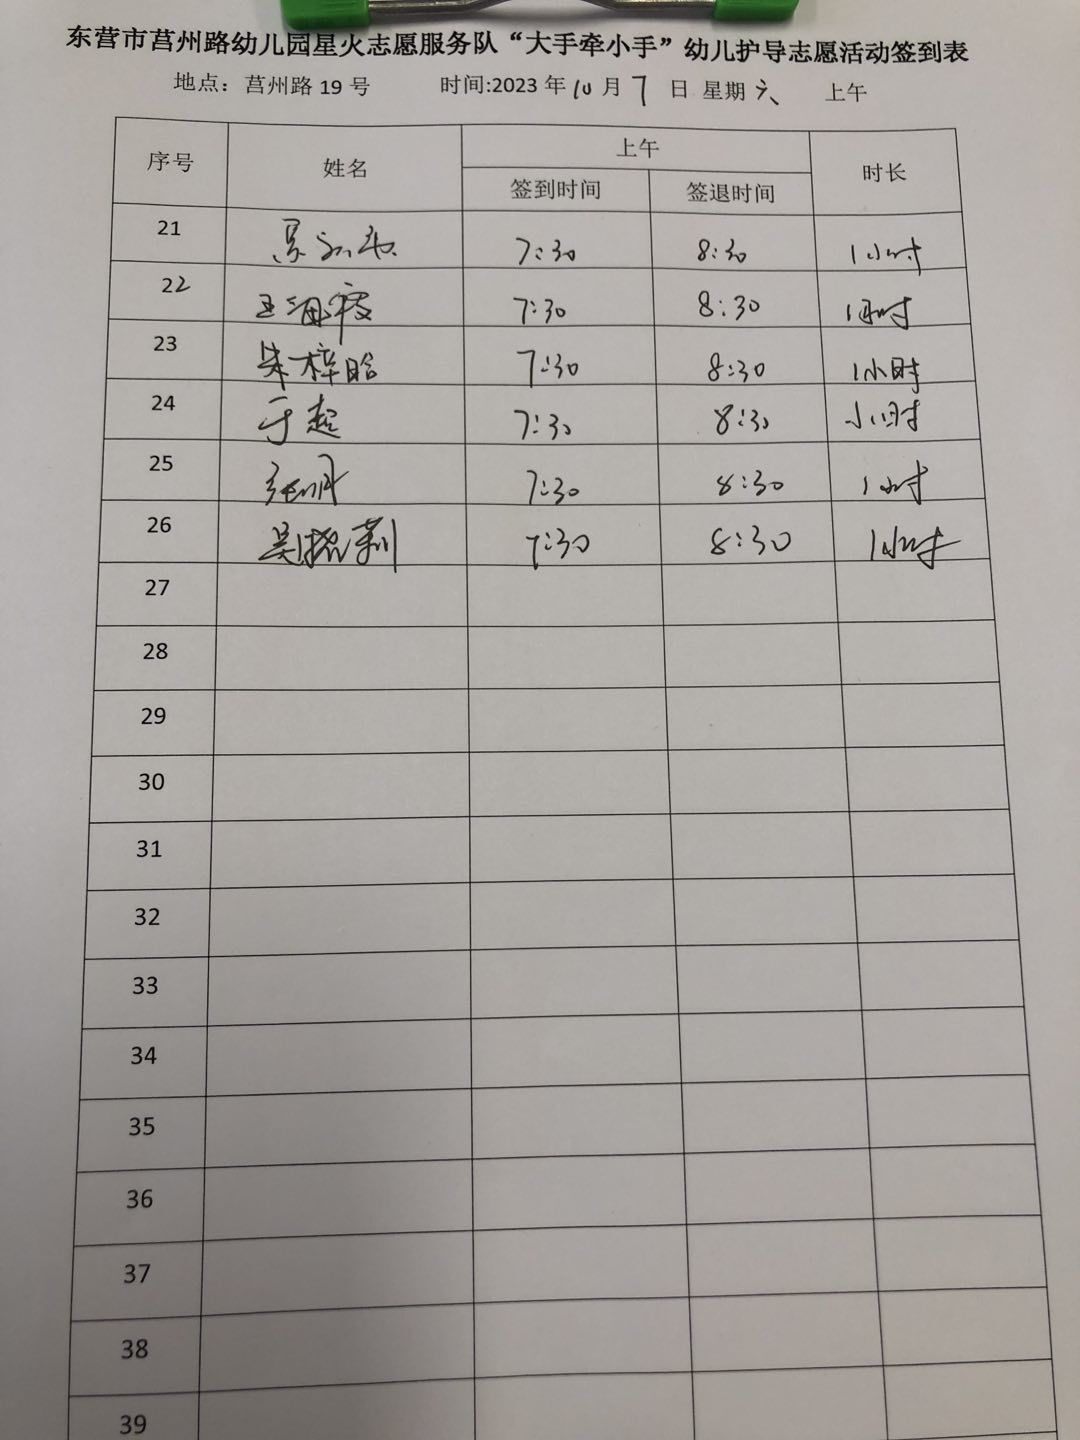 东营市莒州路幼儿园星火志愿服务队“大手牵小手”幼儿护导志愿活动签到表
地点：莒州路 19 号 时间:2023 年 10 月 7 日 星期 六 上午
序号 姓名 上午 时长
签到时间 签退时间
21 7:30 8:30 1小时
22 王海霞 7:30 8:30 1小时
23 朱梓晗 7:30 8:30 1小时
24 于超 7:30 8:30 小时
25 7:30 8:30 1小时
26 吴 莉 7:30 8:30 1小时
27
28
29
30
31
32
33
34
35
36
37
38
39